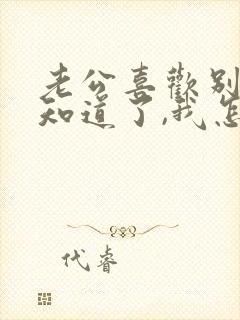 老公喜歡别
知道了,我怎
代睿